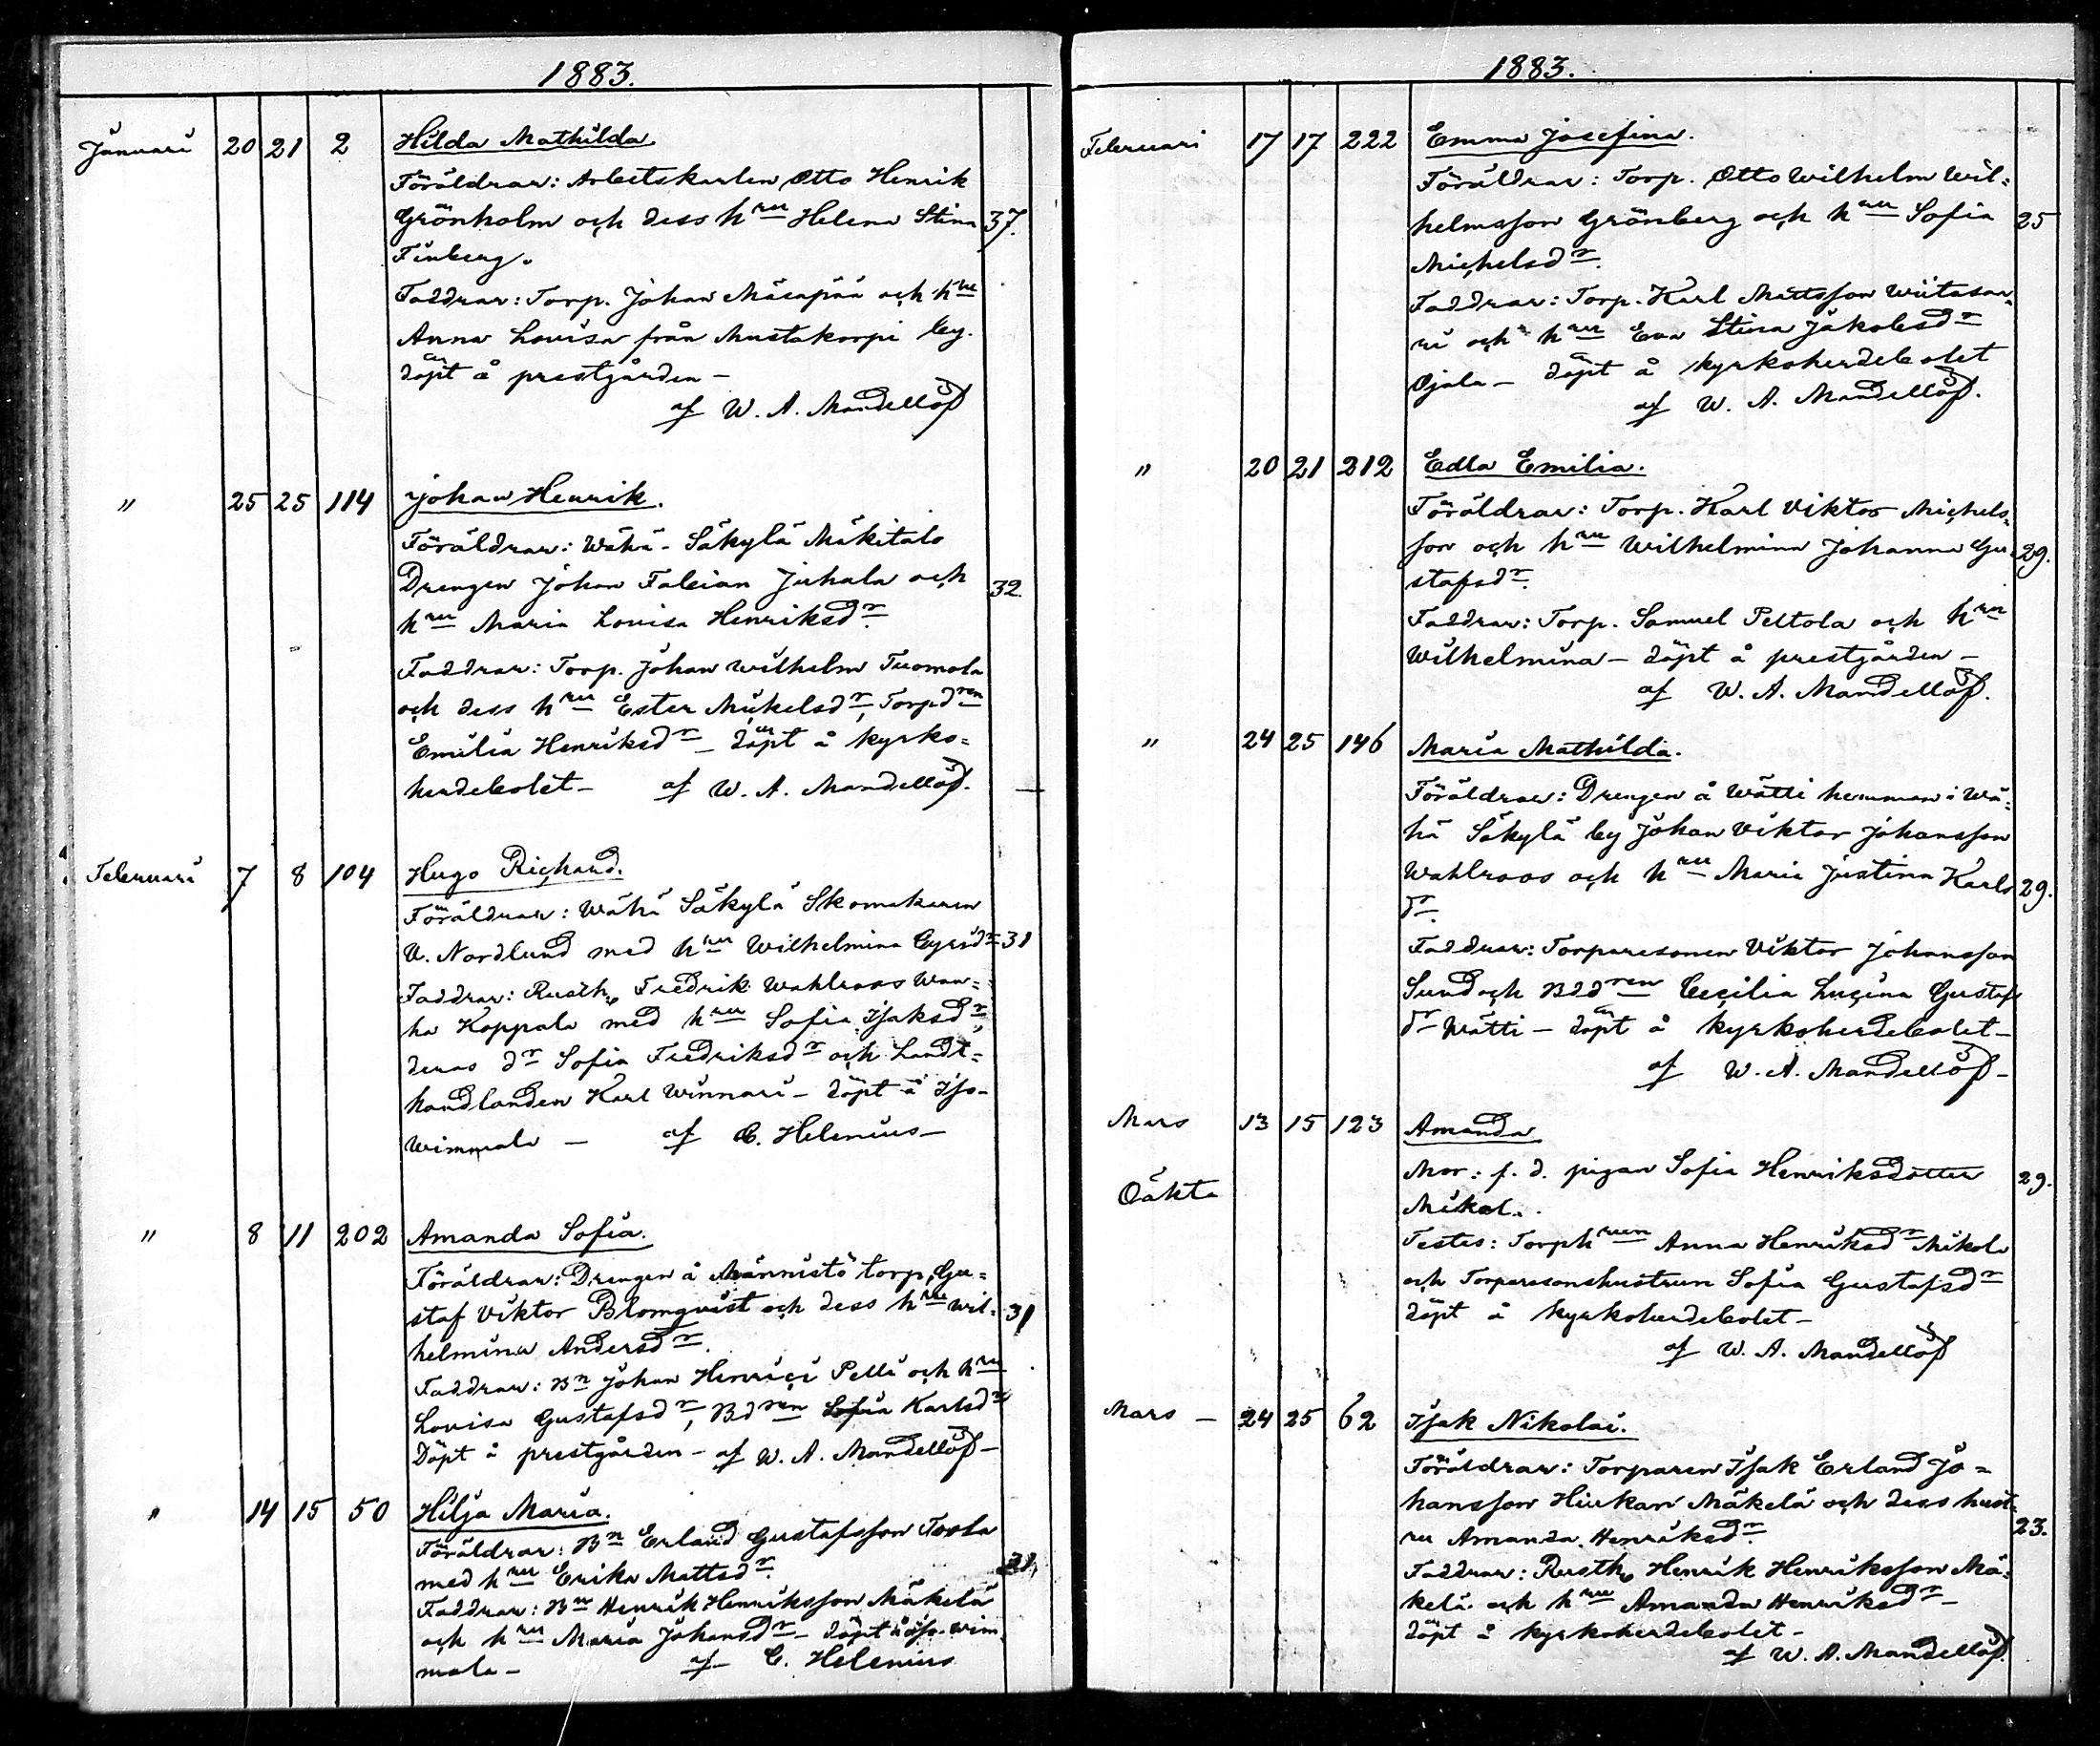 1883.
Januari 20 21 2 Hilda Mathilda.
Föräldrar: Arbetskarlen Otto Henrik
Grönholm och dess hru Helena Stina 37.
Finberg.
Faddrar: Torp. Johan Mäsapää och hru
Anna Lovisa från Mustakorpi by.
döpt å prestgården –
af W. A. Mandellöf
" 25 25 114 Johan Henrik.
Föräldrar: Wähä-Säkylä Mäkitalo
Drengen Johan Fabian Juhala och 32.
hru Maria Lovisa Henriksdr.
Faddrar: Torp. Johan Wilhelm Tuomola
och dess hru Ester Mickelsdr, Torpdren
Emilia Henriksdr – döpt å kyrko=
herdebolet – af W. A. Mandellöf.
Februari 7 8 104 Hugo Richard.
Föräldrar: Wähä Säkylä Skomakaren
V. Nordlund med hru Wilhelmina Cyrisdr 31
Faddrar: Rusth. Fredrik Wahlroos Wan=
ha Koppala med hru Sofia Isaksdr,
deras dr Sofia Fredriksdr och Landt=
handlanden Karl Winnari – döpt å Iso-
wimmala – af C. Helenius –
" 8 11 202 Amanda Sofia.
Föräldrar: Drengen å Männistö torp, Gu=
staf Viktor Blomqvist och dess hru Wil= 31
helmina Andersdr.
Faddrar: Bn Johan Henrici Pelli och hru
Lovisa Gustafsdr, Bdren Sofia Karlsdr
Döpt å prestgården – af W. A. Mandellöf –
" 14 15 50 Hilja Maria.
Föräldrar: Bn Erland Gustafsson Tosla
med hru Erika Mattsdr. 31,
Faddrar: Bn Henrik Henriksson Mäkelä
och hru Maria Johansdr – döpt å Iso-wim
mala – af C. Helenius
1883.
Februari 17 17 222 Emma Josefina.
Föräldrar: Torp. Otto Wilhelm Wil=
helmsson Grönberg och hru Sofia 25
Michelsdr.
Faddrar: Torp. Karl Mattsson Wiitasaa=
ri och hru Eva Stina Jakobsdr
Ojala – döpt å kyrkoherdebolet
af W. A. Mandellöf.
" 20 21 212 Edla Emilia.
Föräldrar: Torp. Karl Viktor Michels=
son och hru Wilhelmina Johanna Gu= 29.
stafsdr.
Faddrar: Torp. Samuel Peltola och hru
Wilhelmina – döpt å prestgården –
af W. A. Mandellöf.
" 24 25 146 Maria Mathilda.
Föräldrar: Drengen å Wätti hemman i Wä=
hä Säkylä by Johan Viktor Johansson
Wahlroos och hru Maria Justina Karls 29.
dr.
Faddrar: Torparesonen Viktor Johansson
Sund och Bddren Cecilia Lucina Gustafs
dr Wätti – döpt å kyrkoherdebolet –
af W. A. Mandellöf –
Mars 13 15 123 Amanda
Oäkta
Mor: f. d. pigan Sofia Henriksdotter 29.
Mikol..
Testes: Torphruen Anna Henriksdr Mikola
och Torparesonshustrun Sofia Gustafsdr
döpt å kyrkoherdebolet –
af W. A. Mandellöf
Mars – 24 25 62 Isak Nikolai.
Föräldrar: Torparen Isak Erland Jo=
hansson Hiukan Mäkelä och dess hust=
ru Amanda Henriksdr. 23.
Faddrar: Rusth. Henrik Henriksson Mä=
kelä och hru Amanda Henriksdr –
döpt å kyrkoherdebolet –
af W. A. Mandellöf.